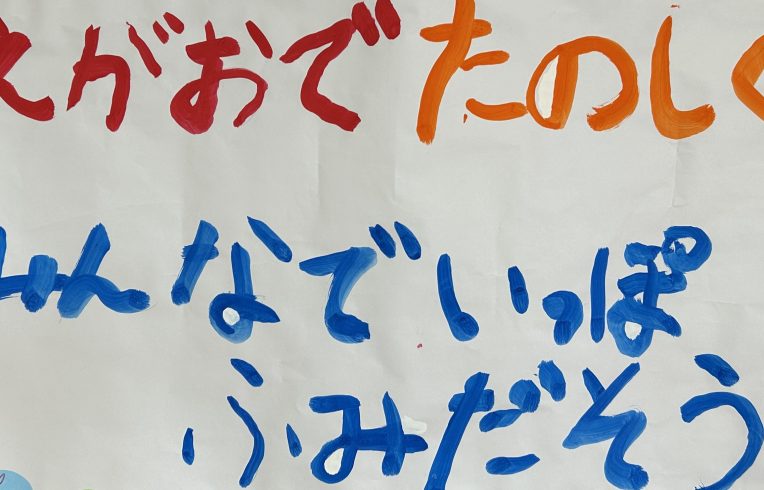 えがおで たのしく
みんなで いっぽ
ふみだそう